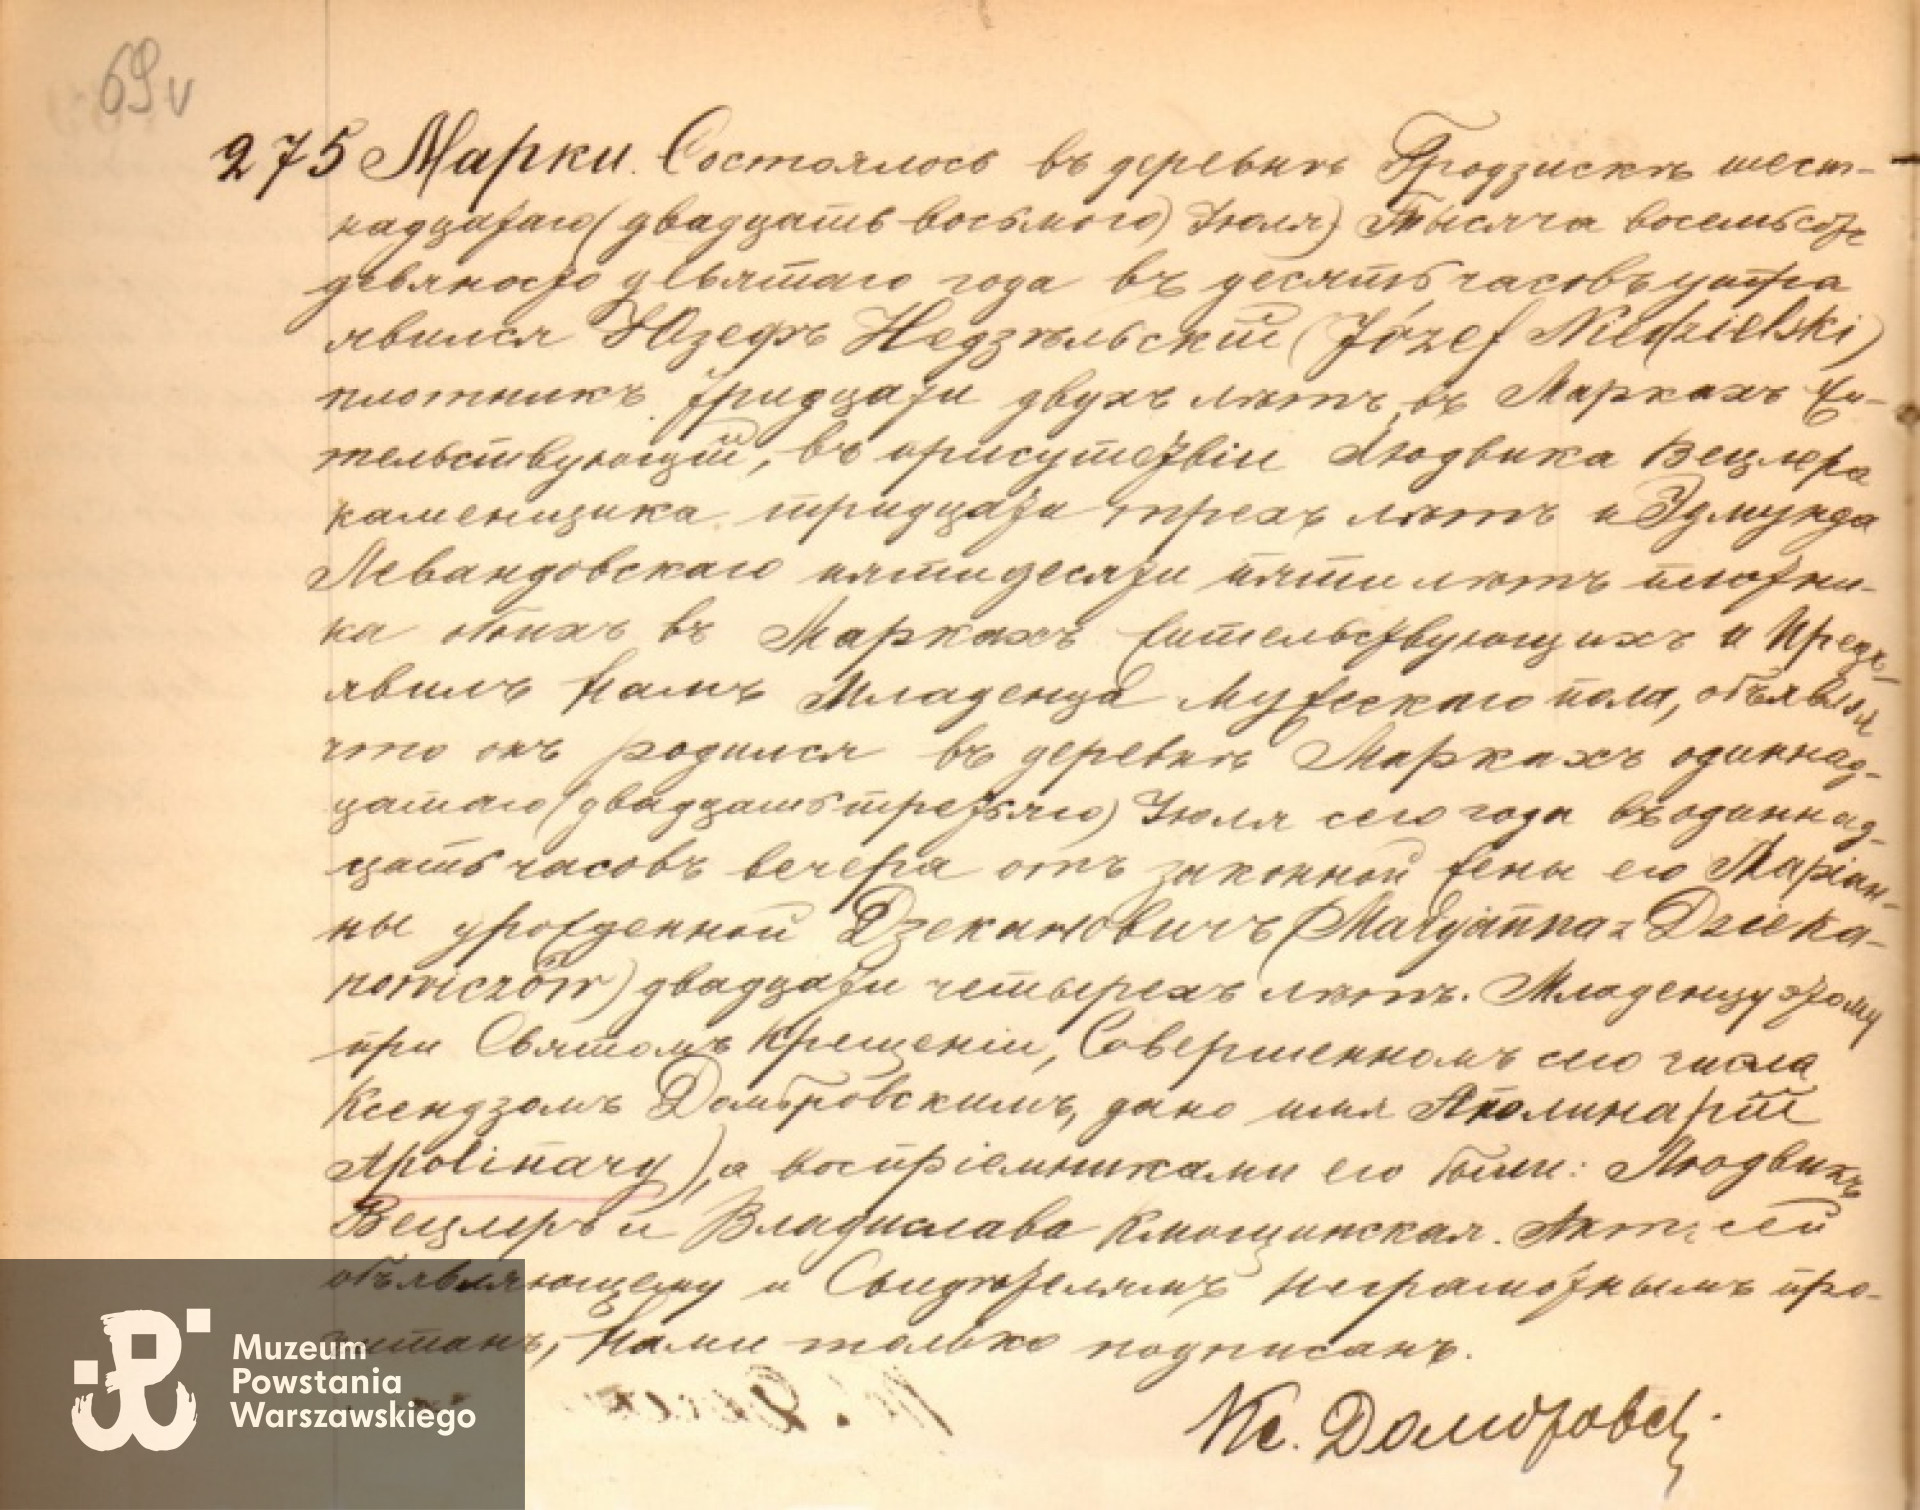 69v
275 Марки. Состоялось въ деревнѣ Гродзискѣ шест-
надцатаго (двадцать восьмого) Іюля) Тысяча восемьсотъ
девяносто девятаго года въ десять часовъ утра
явился Юзефъ Недзѣльскій (Józef Niedzielski)
плотникъ тридцати двухъ лѣтъ, въ Маркахъ жи-
тельствующій, въ присутствіи Людвика Вецлера
каменщика тридцати трехъ лѣтъ и Эдмунда
Левандовскаго пятидесяти пяти лѣтъ плотни-
ка обоихъ въ Маркахъ жительствующихъ и предъ-
явилъ намъ Младенца мужескаго пола, объявляя
что онъ родился въ деревнѣ Маркахъ одиннад-
цатаго (двадцать третьяго) Іюля сего года въ одиннад-
цать часовъ вечера отъ законной жены его Маріан-
ны урожденной Дзекановичъ (Maryanna z Dzieka-
nowiczów) двадцати четырехъ лѣтъ. Младенцу этому
при Святомъ Крещеніи, Совершенномъ сего числа
Ксендзомъ Домбровскимъ, дано имя Аполинарій
Apolinary), а воспріемниками его были: Людвикъ
Вецлеръ и Владислава Актъ сей
объявляющему и Свидѣтелямъ неграмотнымъ про-
читанъ, Нами только подписанъ.
Кс. Домбровск
Muzeum
Powstania
Warszawskiego